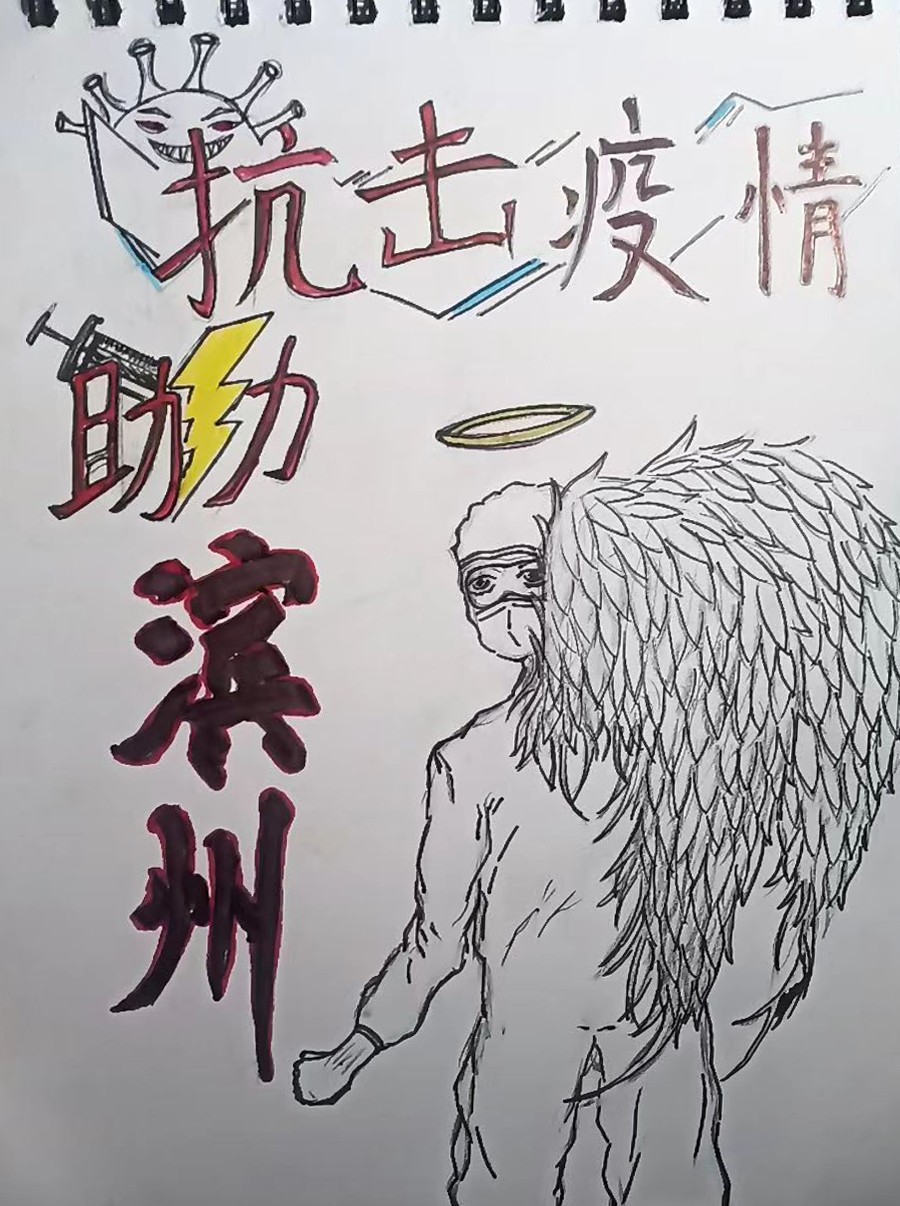 抗击疫情
助力
滨州